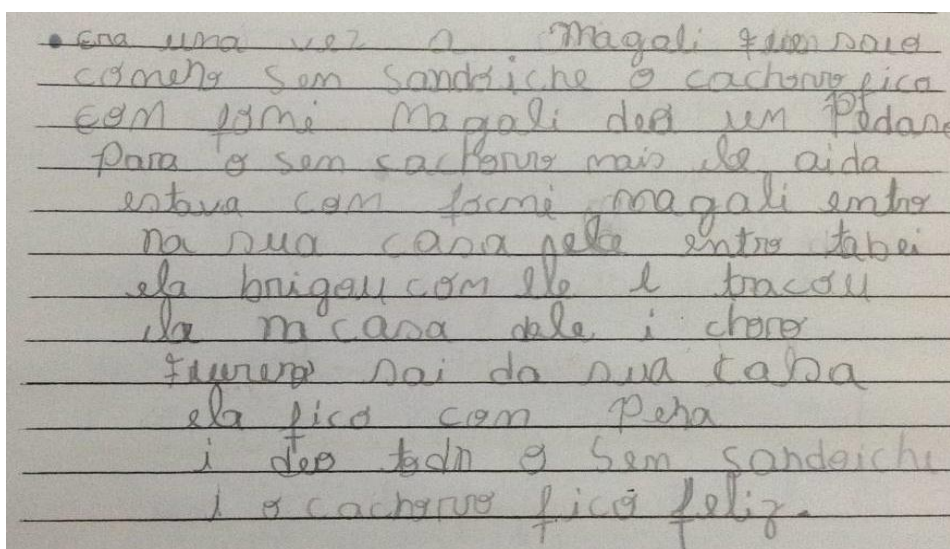 Era uma vez a Magali saio
comeno sem sandoiche o cachorro fico
com fome Magali deo um Pedaso
Para o sem cachorro mais ele aida
estava com focme magali entro
na sua casa pele entro tabei
ela brigou com ele e tracou
ela casa dele i choro
sai da sua casa
ela fico com Pena
i deo todn o sem sandoiche
i o cachorro fico feliz.